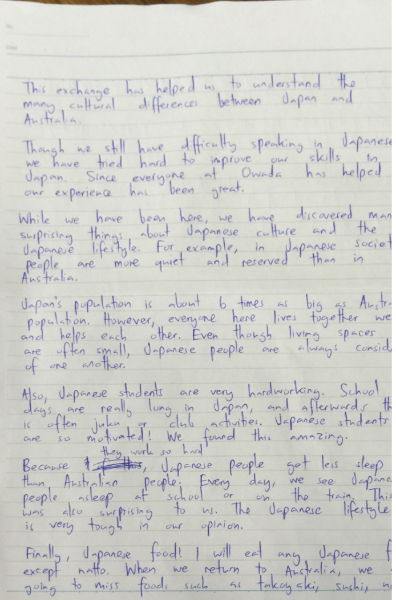 This exchange has helped us to understand the
many cultural differences between Japan and
Australia.
Though we still have difficulty speaking in Japanese
we have tried hard to improve our skills in
Japan. Since everyone at Owada has helped
our experience has been great.
While we have been here, we have discovered man
surprising things about Japanese culture and the
Japanese lifestyle. For example, in Japanese societ
people are more quiet and reserved than in
Australia.
Japan's population is about 6 times as big as Austra
population. However, everyone here lives together we
and helps each other. Even though living spaces
are often small, Japanese people are always consid
of one another.
Also, Japanese students are very hardworking. School
days are really long in Japan, and afterwards th
is often juku or club activities. Japanese students
are so motivated! We found this amazing.
they work so hard
Because , Japanese people got less sleep
than Australian people. Every day, we see Japane
people asleep at school or on the train. This
was also surprising to us. The Japanese lifestyle
is very tough in our opinion.
Finally, Japanese food! I will eat any Japanese f
except natto. When we return to Australia, we
going to miss foods such as takoyaki, sushi,